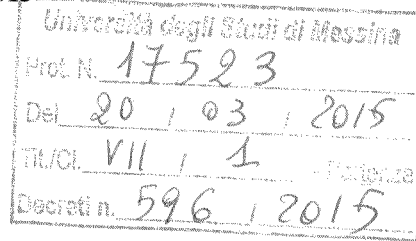 Università degli Studi di Messina
Prot. N. 17523
Del 20 / 03 / 2015
Tit./Cl. VII / 1 - Partenza
Decreti n. 596 / 2015